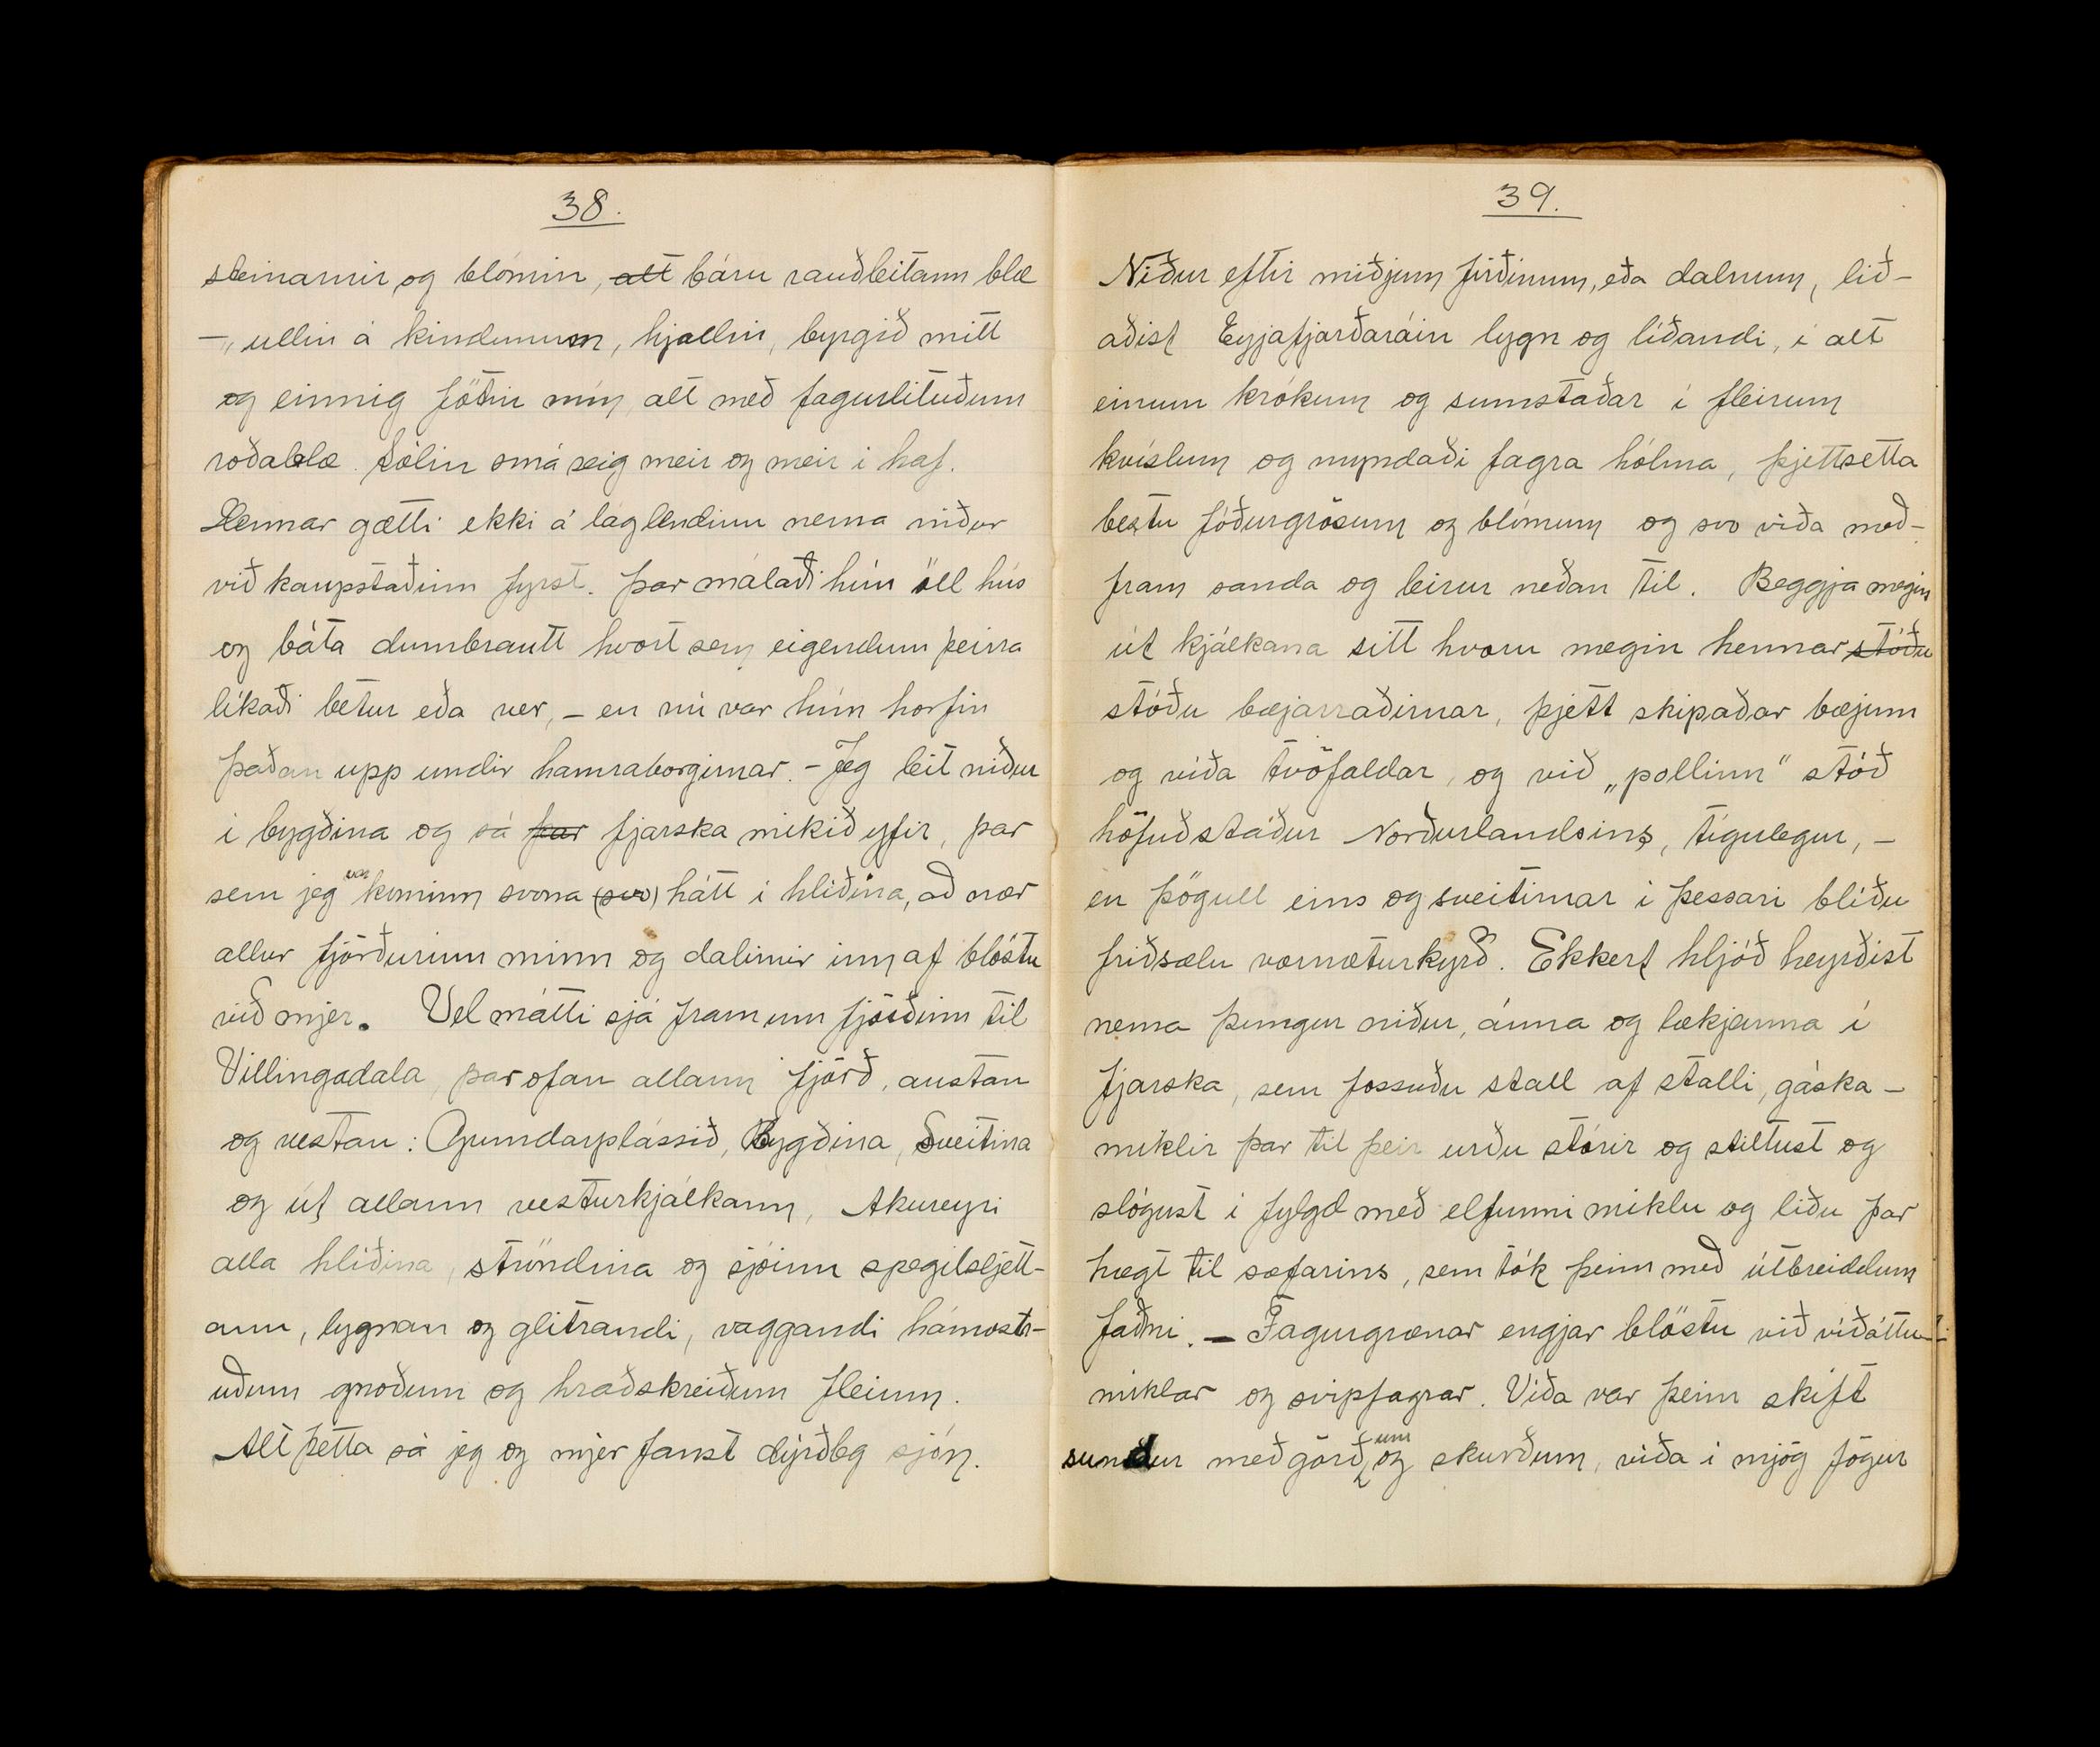 38.
steinarnir og blómin, alt báru rauðleitann blæ
–, ullin á kindunum, hjallin, byrgið mitt
og einnig fötin mín alt með fagurlituðum
roðablæ. Sólin smá seig meir og meir í haf.
Hennar gætti ekki á láglendinu nema niður
við kaupstaðinn fyrst. Þar málaði hún öll hús
og báta dumbrautt hvort sem eigendum þeirra
líkaði betur eða ver, – en nú var hún horfin
þaðan upp undir hamraborgirnar. – Jeg leit niður
í bygðina og sá þar fjarska mikið yfir, þar
sem jeg var kominn svona (svo) hátt í hlíðina, að nær
allur fjörðurinn minn og dalirnir inn af blöstu
við mjer. Vel mátti sjá fram um fjörðinn til
Villingadala, þar ofan allann fjörð, austan
og vestan: Grundarplássið, Bygðina, Sveitina
og út allann vesturkjálkann, Akureyri
alla hlíðina, ströndina og sjóinn spegilsljett-
ann, lygnan og glitrandi, vaggandi hámöstr-
uðum gnoðum og hraðskreiðum fleium.
Alt þetta sá jeg og mjer fanst dýrðleg sjón.
39.
Niður eftir miðjum firðinum, eða dalnum, lið-
aðist Eyjafjarðaráin lygn og líðandi, í alt
einum krókum og sumstaðar í fleirum
kvíslum og myndaði fagra hólma, þjettsetta
bestu fóðurgrösum og blómum og svo víða með-
fram sanda og leirur neðan til. Beggja megin
út kjálkana sitt hvoru megin hennar stóðu
stóðu bæjarraðirnar, þjett skipaðar bæjum
og víða tvöfaldar, og við „pollinn“ stóð
höfuðstaður Norðurlandsins, tígulegur, –
en þögull eins og sveitirnar í þessari blíðu
friðsælu vornæturkyrð. Ekkert hljóð heyrðist
nema þungur niður, ánna og lækjanna í
fjarska, sem fossuðu stall af stalli, gáska-
miklir þar til þeir urðu stórir og stiltust og
slógust í fylgd með elfunni miklu og liðu þar
hægt til sæfarins, sem tók þeim með útbreiddum
faðmi. – Fagurgrænar engjar blöstu við víðáttu-
miklar og svipfagrar. Víða var þeim skift
sundur með görðum og skurðum, víða í mjög fögur